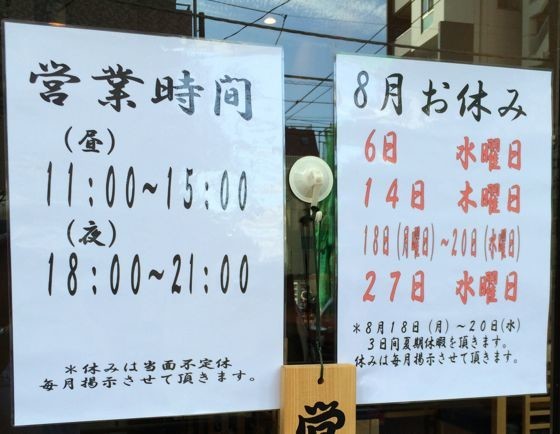 営業時間
(昼)
11:00~15:00
(夜)
18:00~21:00
*休みは当面不定休
毎月掲示させて頂きます。
8月お休み
6日 水曜日
14日 木曜日
18日(月曜日)~20日(水曜日)
27日 水曜日
*8月18日(月)~20日(水)
3日間夏期休暇を頂きます。
休みは毎月掲示させて頂きます。
営